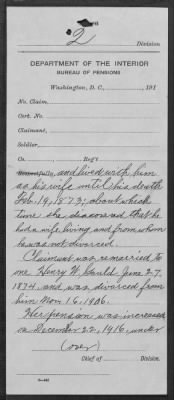 2 Division
DEPARTMENT OF THE INTERIOR
BUREAU OF PENSIONS
Washington, D. C., , 191
No. Claim,
Cert. No.
Claimant,
Soldier,
Co. , Reg't
and lived with him
as his wife until his death
Feb. 19, 1873; about which
time she discovered that he
had a wife living, and from whom
he was not divorced.
Claimant was remarried to
one Henry W. Gould June 27,
1874, and was divorced from
him Nov. 16, 1906.
Her pension was increased
on December 22, 1916, under
(over)
Chief of Division.